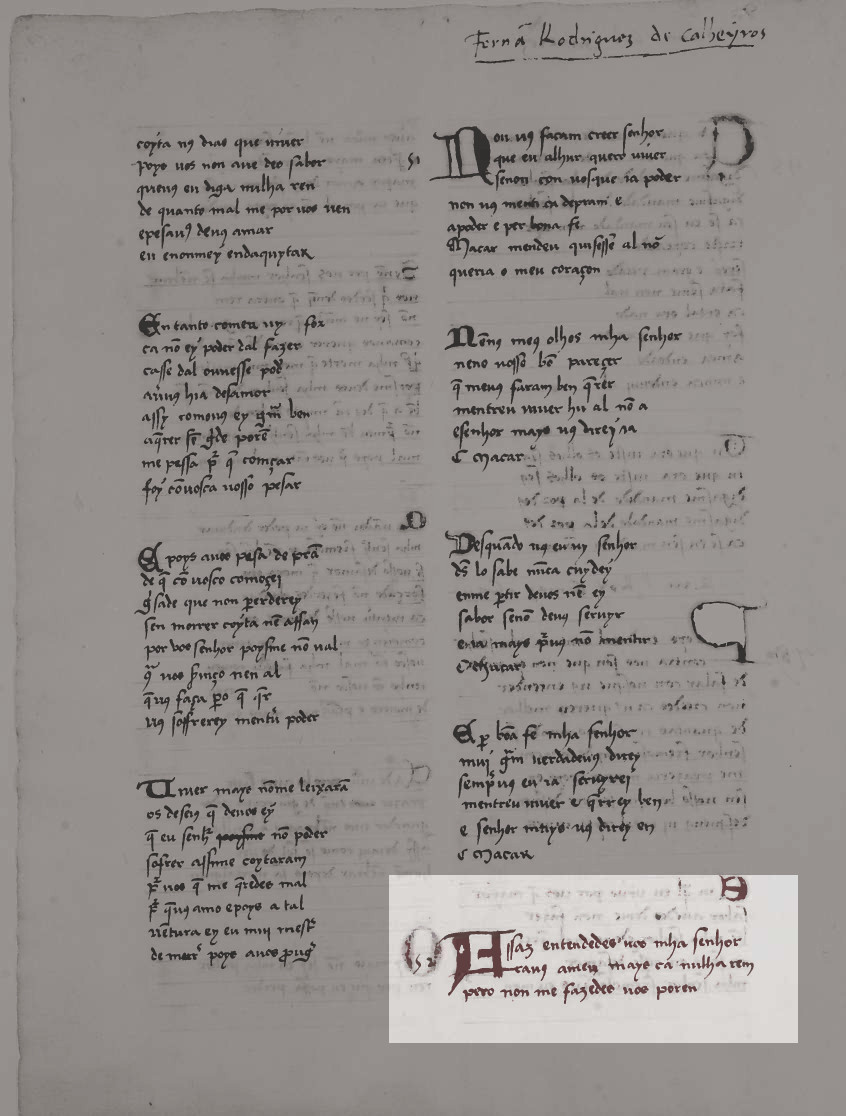 Fernã Rodriguez de Calheyros
coyta nꝯ dias que uiuer
Poys uos non aue deo sabor
queuꝯ eu diga nulha ren
de quanto mal me por uos uen
epesauꝯ deuꝯ amar
eu enonmey endaquytar
En tanto comeu uy foz
ca nõ ey poder dal fazer
casse dal ouuesse pod
auuꝯ hia desamor
assy comouꝯ ey grã ben
me pessa que começar
foy cõuosco uosso pesar
A poys auos pesa de prã
de q̃ cõ uosco começei
guisade que non perderey
sen morrer coyta nẽ affan
por uos senhor poysme nõ ual
uos seruiço nen al
q̃uꝯ faça pero q̃ q̃r
uꝯ soffrerey mentu poder
Uiuer mays nõme leixarã
os deseiꝯ q̃ deuos ey
q̃ eu senhr nõ poder
sofrer assyme coytaram
pr uos q̃ me q̃redes mal
pr q̃uꝯ amo epoys a tal
uentura ey eu mui mest
de meer poys auos proug
51
Non uꝯ facam creer senhor
que eu alhur quero uiuer
senon con uosque ia poder
non uꝯ ca depram e
a poder e per bona fe
Macar mendeu quisesse al nõ
queria o meu coraçon
Nenꝯ meꝯ olhos mha senhor
neno uosso bõ pareçer
q̃ meuꝯ faram ben q̃rer
mentreu uiuer hu al nõ a
esenhor mays uꝯ direy ia
C Macar
Desquãdo uꝯ eu uy senhor
dꝯ lo sabe nũca cuydey
enme partir deuos nẽ ey
sabor senõ deuꝯ seruyr
e ia mays preuꝯ nõ mentir
C Macar
A per bõa fe mha senhor
mui grã uerdadeuꝯ direy
sempuꝯ eu ia seruyrei
mentreu uiuer e querrey ben
e senhor mays uꝯ direy en
C Macar
52
Assaz entendedes uos mha senhor
cauꝯ ameu mays ca nulha rem
pero non me fazedes uos poren